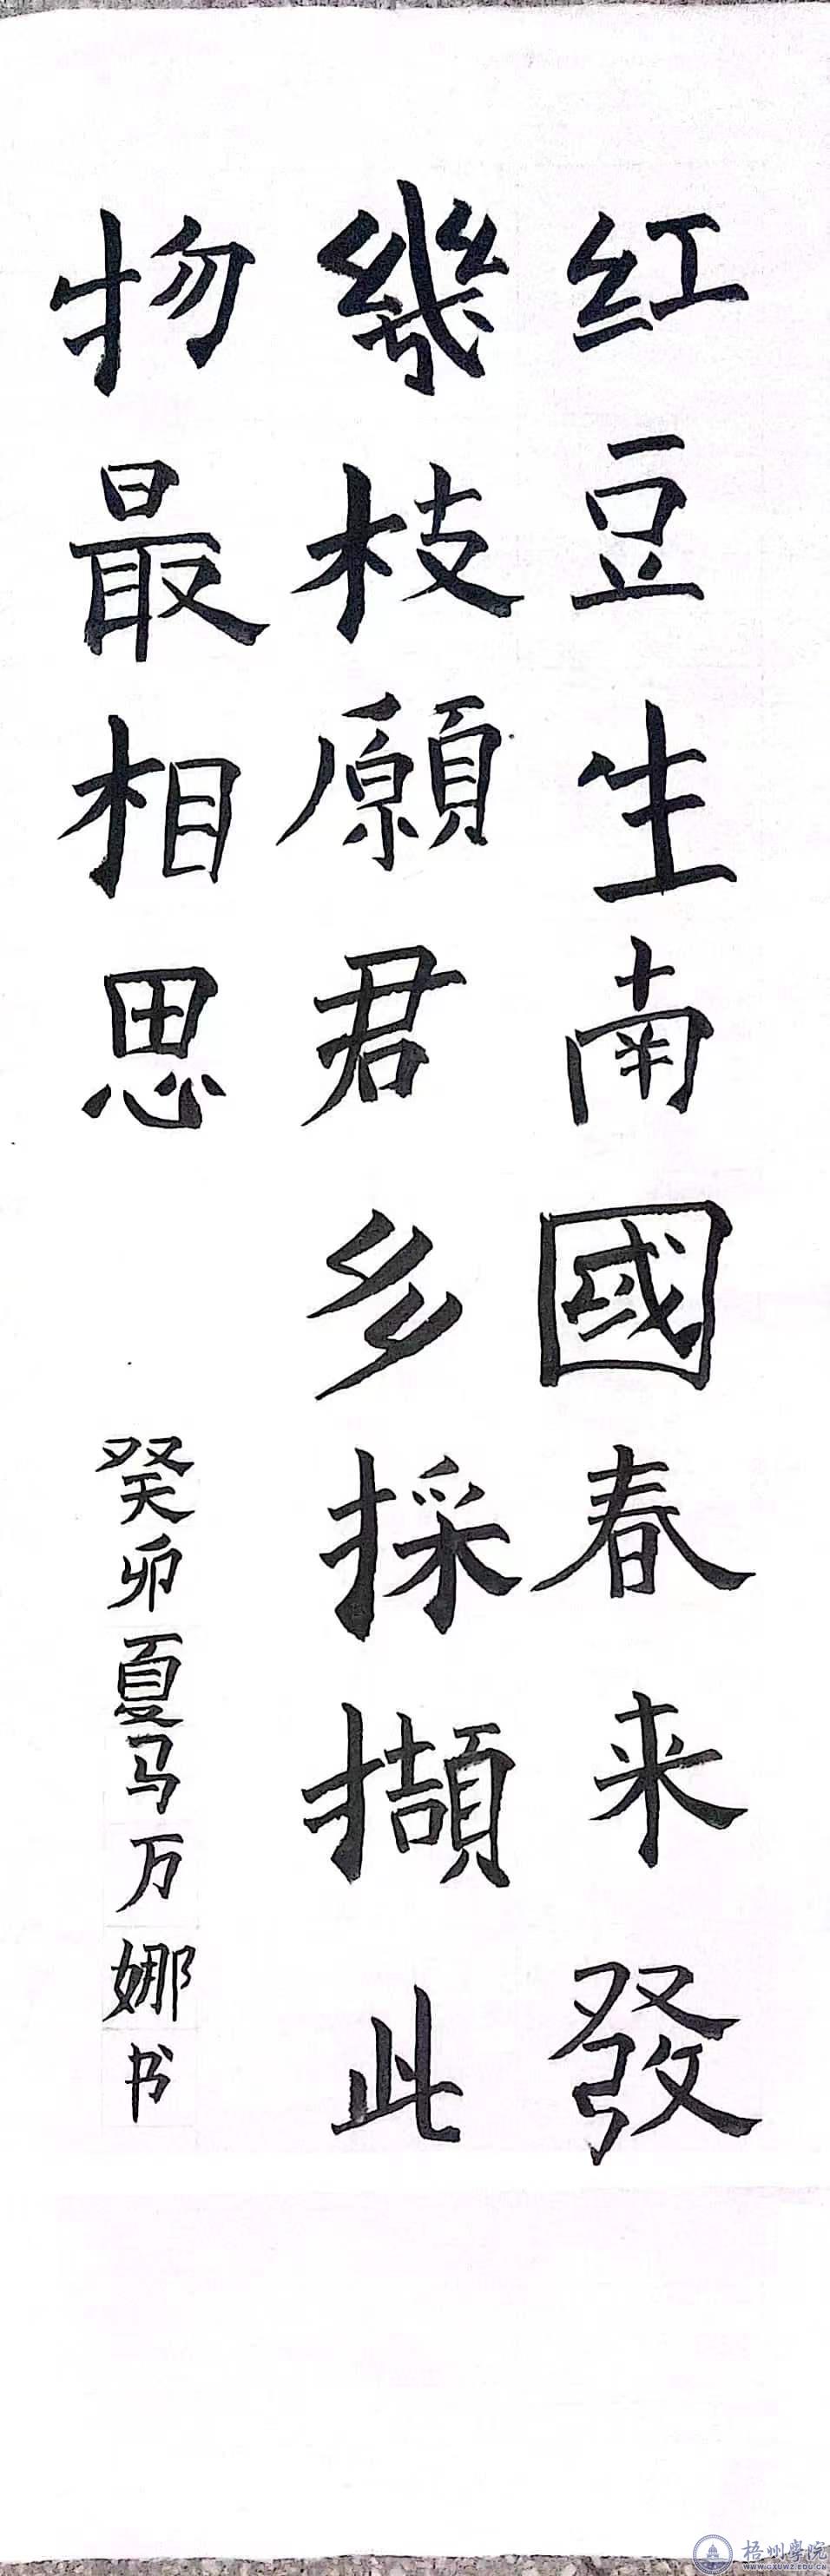 红豆生南國春来發
幾枝願君多採擷此
物最相思
癸卯夏马万娜书
梧州學院
WWW.GXUWZ.EDU.CN